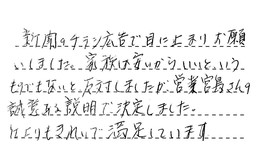 新聞のチラシ広告で目に止まりお願
いしました。家族は安いからいいという
ものでもないと反対しましたが、営業宮島さんの
誠意ある説明で決定しました。
仕上りもきれいで満足しています